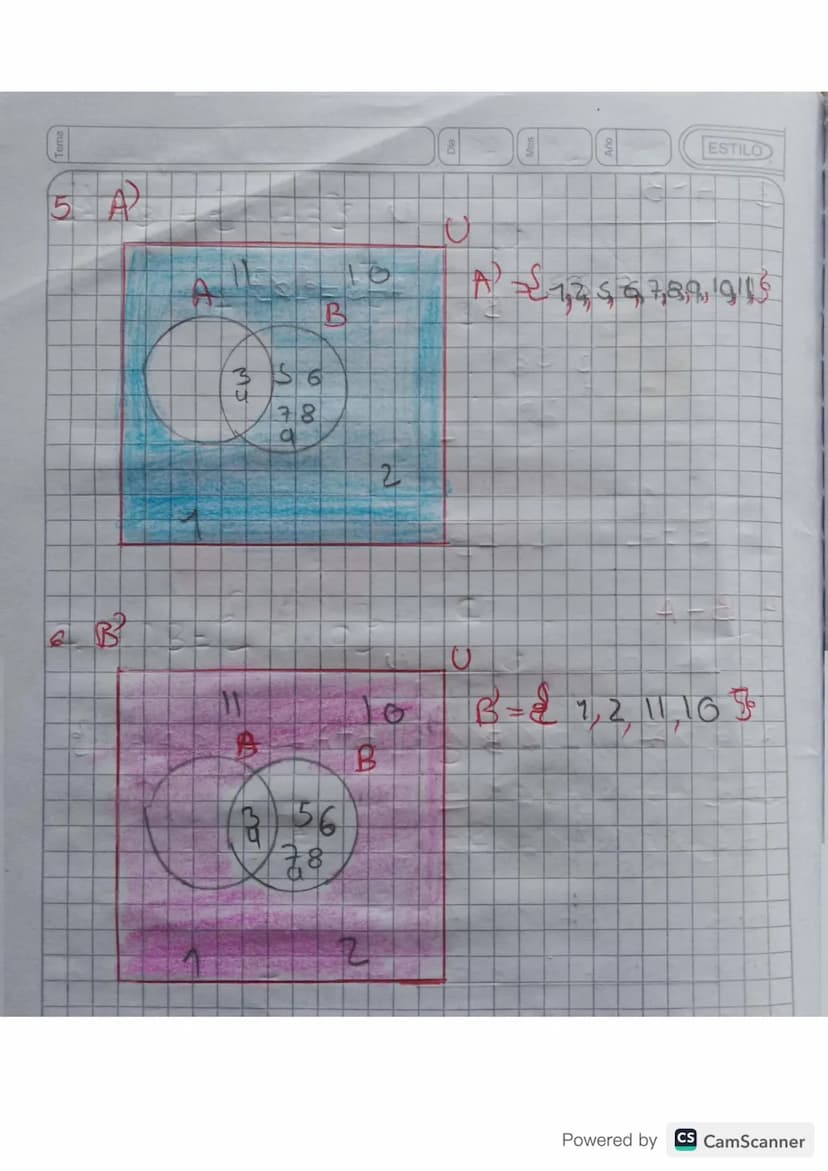 Tema Dia Mes Año ESTILO
5 A'
U
11 10
A B
A' = {1,2,5,6,7,8,9,10,11}
3 5 6
4
7 8
9
2
1
6 B'
U
11 10
B' = { 1,2,11,10 }
A B
3 5 6
4
7 8
9
1 2
Powered by CS CamScanner